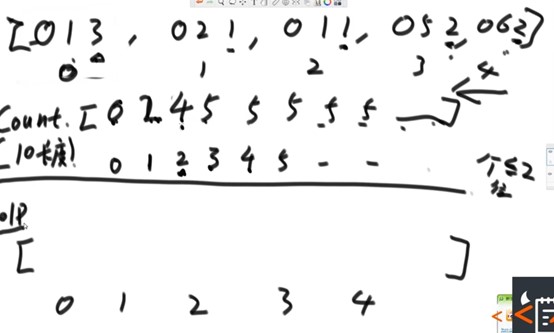 [013, 021, 011, 052, 062]
0 1 2 3 4
Count. [0 2 4 5 5 5 5 5 —]
[10长度] 0 1 2 3 4 5 - -
个位≤2
[ ]
0 1 2 3 4